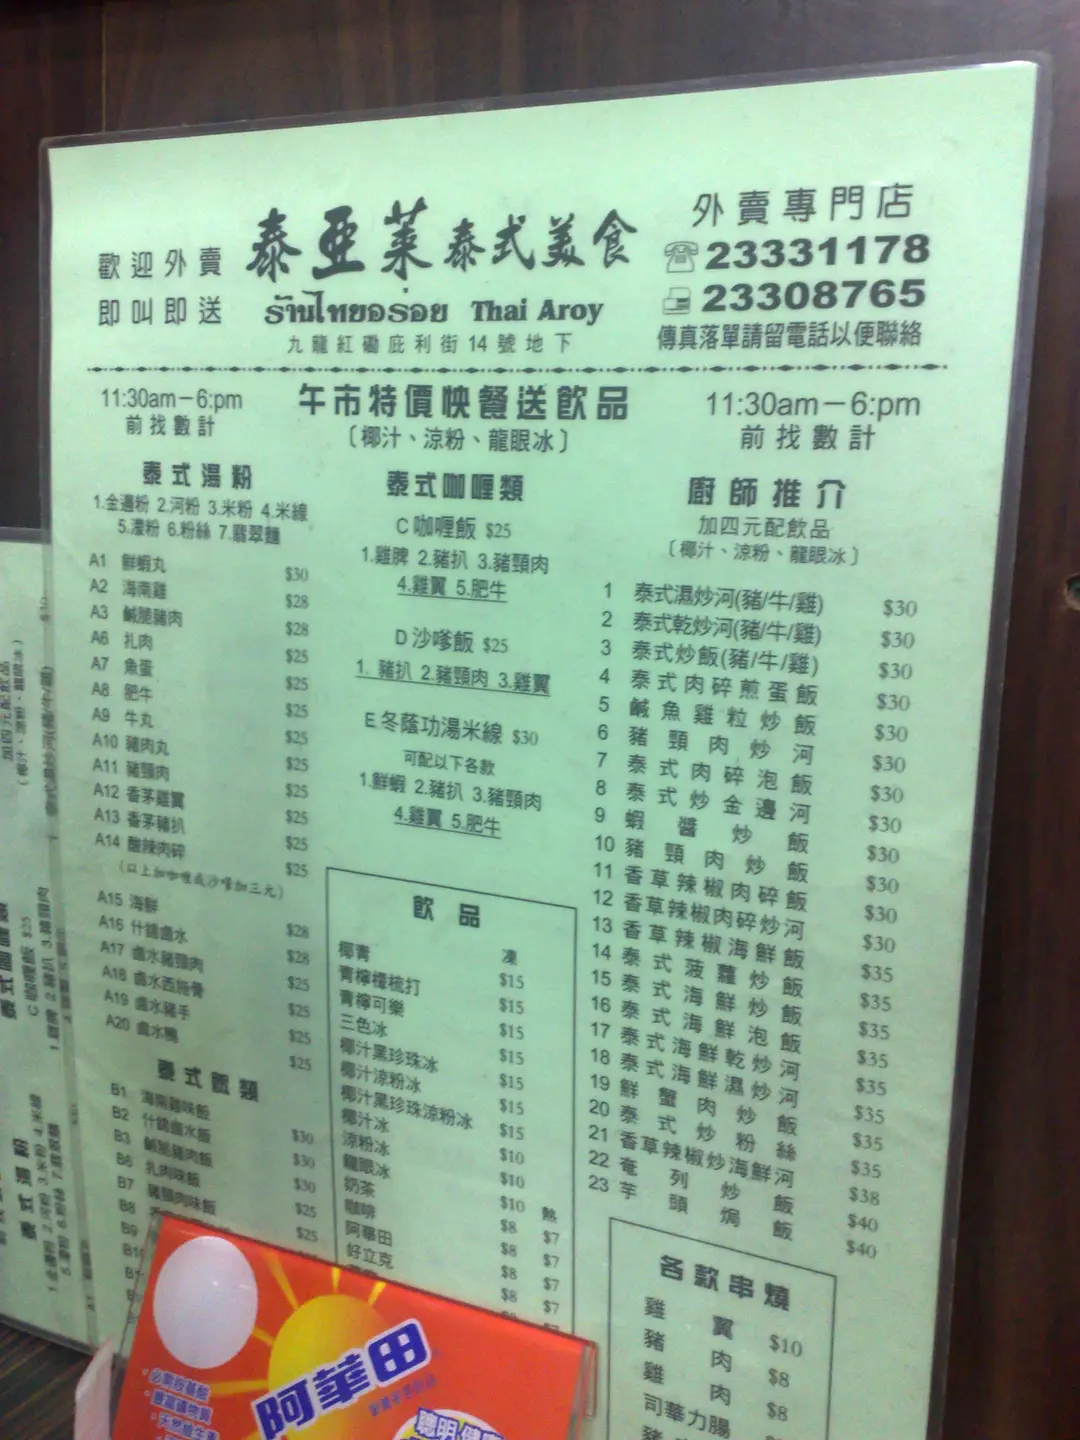 歡迎外賣
即叫即送
泰亞萊泰式美食
ร้านไทยอร่อย Thai Aroy
九龍紅磡庇利街14號地下
外賣專門店
23331178
23308765
傳真落單請留電話以便聯絡
11:30am－6:pm
前找數計
午市特價快餐送飲品
〔椰汁、涼粉、龍眼冰〕
11:30am－6:pm
前找數計
泰式湯粉
1.金邊粉 2.河粉 3.米粉 4.米線
5.瀨粉 6.粉絲 7.翡翠麵
A1 鮮蝦丸 $30
A2 海南雞 $28
A3 鹹脆豬肉 $28
A6 扎肉 $25
A7 魚蛋 $25
A8 肥牛 $25
A9 牛丸 $25
A10 豬肉丸 $25
A11 豬頸肉 $25
A12 香茅雞翼 $25
A13 香茅豬扒 $25
A14 酸辣肉碎 $25
(以上加咖喱或沙嗲加三元)
A15 海鮮 $28
A16 什錦鹵水 $28
A17 鹵水豬頸肉 $25
A18 鹵水西施骨 $25
A19 鹵水豬手 $25
A20 鹵水鴨 $25
泰式飯類
B1 海南雞味飯 $30
B2 什錦鹵水飯 $30
B3 鹹脆豬肉飯 $30
B6 扎肉味飯 $25
B7 豬頸肉味飯 $25
B8
B9
泰式咖喱類
C 咖喱飯 $25
1.雞脾 2.豬扒 3.豬頸肉
4.雞翼 5.肥牛
D 沙嗲飯 $25
1. 豬扒 2.豬頸肉 3.雞翼
E.冬蔭功湯米線 $30
可配以下各款
1.鮮蝦 2.豬扒 3.豬頸肉
4.雞翼 5.肥牛
飲品
凍
椰青 $15
青檸檬梳打 $15
青檸可樂 $15
三色冰 $15
椰汁黑珍珠冰 $15
椰汁涼粉冰 $15
椰汁黑珍珠涼粉冰 $15
椰汁冰 $10
涼粉冰 $10
龍眼冰 $10 熱
奶茶 $8 $7
咖啡 $8 $7
阿華田 $8 $7
好立克 $8 $7
廚師推介
加四元配飲品
〔椰汁、涼粉、龍眼冰〕
1 泰式濕炒河(豬/牛/雞) $30
2 泰式乾炒河(豬/牛/雞) $30
3 泰式炒飯(豬/牛/雞) $30
4 泰式肉碎煎蛋飯 $30
5 鹹魚雞粒炒飯 $30
6 豬頸肉炒河 $30
7 泰式肉碎泡飯 $30
8 泰式炒金邊河 $30
9 蝦醬炒飯 $30
10 豬頸肉炒飯 $30
11 香草辣椒肉碎飯 $30
12 香草辣椒肉碎炒河 $30
13 香草辣椒海鮮飯 $35
14 泰式菠蘿炒飯 $35
15 泰式海鮮炒飯 $35
16 泰式海鮮泡飯 $35
17 泰式海鮮乾炒河 $35
18 泰式海鮮濕炒河 $35
19 鮮蟹肉炒飯 $35
20 泰式炒粉絲 $35
21 香草辣椒炒海鮮河 $38
22 奄列炒飯 $40
23 芋頭焗飯 $40
各款串燒
雞翼 $10
豬肉 $8
雞肉 $8
司華力腸
豬
阿華田
聰明 健康